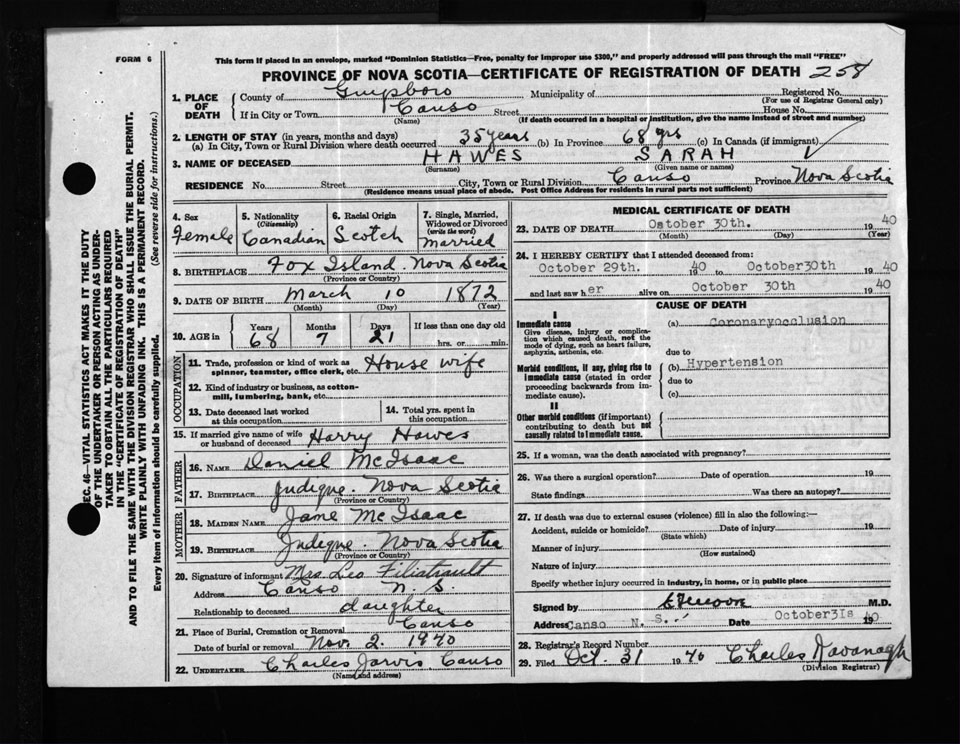 This form if placed in an envelope, marked "Dominion Statistics—Free, penalty for improper use $300," and properly addressed will pass through the mail "FREE"
FORM 6
PROVINCE OF NOVA SCOTIA—CERTIFICATE OF REGISTRATION OF DEATH 258
1. PLACE OF DEATH
County of Guysboro Municipality of Registered No.
(For use of Registrar General only)
If in City or Town Canso Street House No.
(Name) (If death occurred in a hospital or institution, give the name instead of street and number)
2. LENGTH OF STAY (in years, months and days)
(a) In City, Town or Rural Division where death occurred 35 years (b) In Province 68 yrs (c) In Canada (if immigrant)
3. NAME OF DECEASED HAWES SARAH
(Surname) (Given name or names)
RESIDENCE No. Street City, Town or Rural Division Canso Province Nova Scotia
(Residence means usual place of abode. Post Office Address for residents in rural parts not sufficient)
4. Sex Female
5. Nationality (Citizenship) Canadian
6. Racial Origin Scotch
7. Single, Married, Widowed or Divorced (write the word) Married
8. BIRTHPLACE Fox Island Nova Scotia
(Province or Country)
9. DATE OF BIRTH March 10 1872
(Month) (Day) (Year)
10. AGE in Years Months Days If less than one day old
68 7 21 hrs. or min.
OCCUPATION
11. Trade, profession or kind of work as spinner, teamster, office clerk, etc. House wife
12. Kind of industry or business, as cotton-mill, lumbering, bank, etc.
13. Date deceased last worked at this occupation
14. Total yrs. spent in this occupation
15. If married give name of wife or husband of deceased Harry Hawes
FATHER
16. NAME Daniel McIsaac
17. BIRTHPLACE Judique. Nova Scotia
(Province or Country)
MOTHER
18. MAIDEN NAME Jane McIsaac
19. BIRTHPLACE Judique. Nova Scotia
(Province or Country)
20. Signature of informant Mrs Leo Filiatrault
Address Canso N.S.
Relationship to deceased daughter
21. Place of Burial, Cremation or Removal Canso
Date of burial or removal Nov. 2. 1940
22. UNDERTAKER Charles Jarvis. Canso
(Name and address)
MEDICAL CERTIFICATE OF DEATH
23. DATE OF DEATH Ostober 30th. 1940
(Month) (Day) (Year)
24. I HEREBY CERTIFY that I attended deceased from:
October 29th. 1940 to October30th 1940
and last saw her alive on October 30th 1940
CAUSE OF DEATH
I
Immediate cause
Give disease, injury or complication which caused death, not the mode of dying, such as heart failure, asphyxia, asthenia, etc.
(a) Coronaryocclusion
due to
Morbid conditions, if any, giving rise to immediate cause (stated in order proceeding backwards from immediate cause).
(b) Hypertension
due to
(c)
II
Other morbid conditions (if important) contributing to death but not causally related to immediate cause.
25. If a woman, was the death associated with pregnancy?
26. Was there a surgical operation? Date of operation 19
State findings Was there an autopsy?
27. If death was due to external causes (violence) fill in also the following:—
Accident, suicide or homicide? Date of injury 19
(State which)
Manner of injury
(How sustained)
Nature of injury
Specify whether injury occurred in industry, in home, or in public place
Signed by M.D.
Address Canso N. S. Date October31s 1940
28. Registrar's Record Number
29. Filed Oct. 31 1940 Charles Kavanagh
(Division Registrar)
SEC. 46—VITAL STATISTICS ACT MAKES IT THE DUTY
OF THE UNDERTAKER OR PERSON ACTING AS UNDER-
TAKER TO OBTAIN ALL THE PARTICULARS REQUIRED
IN THE "CERTIFICATE OF REGISTRATION OF DEATH"
AND TO FILE THE SAME WITH THE DIVISION REGISTRAR WHO SHALL ISSUE THE BURIAL PERMIT.
WRITE PLAINLY WITH UNFADING INK. THIS IS A PERMANENT RECORD.
Every item of Information should be carefully supplied. (See reverse side for instructions.)